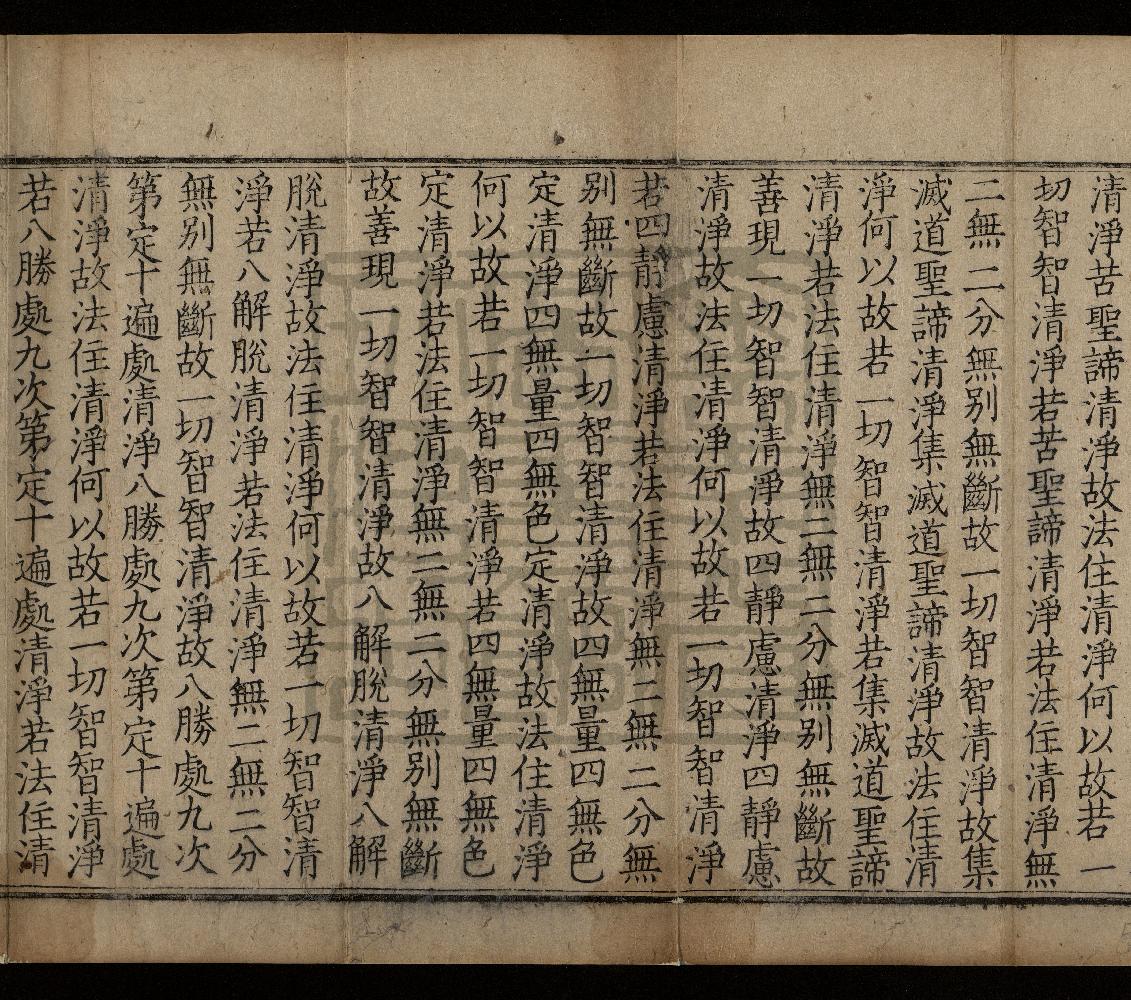 清淨苦聖諦清淨故法住清淨何以故若一
切智智清淨若苦聖諦清淨若法住清淨無
二無二分無別無斷故一切智智清淨故集
滅道聖諦清淨集滅道聖諦清淨故法住清
淨何以故若一切智智清淨若集滅道聖諦
清淨若法住清淨無二無二分無別無斷故
善現一切智智清淨故四靜慮清淨四靜慮
清淨故法住清淨何以故若一切智智清淨
若四靜慮清淨若法住清淨無二無二分無
別無斷故一切智智清淨故四無量四無色
定清淨四無量四無色定清淨故法住清淨
何以故若一切智智清淨若四無量四無色
定清淨若法住清淨無二無二分無別無斷
故善現一切智智清淨故八解脫清淨八解
脫清淨故法住清淨何以故若一切智智清
淨若八解脫清淨若法住清淨無二無二分
無別無斷故一切智智清淨故八勝處九次
第定十遍處清淨八勝處九次第定十遍處
清淨故法住清淨何以故若一切智智清淨
若八勝處九次第定十遍處清淨若法住清